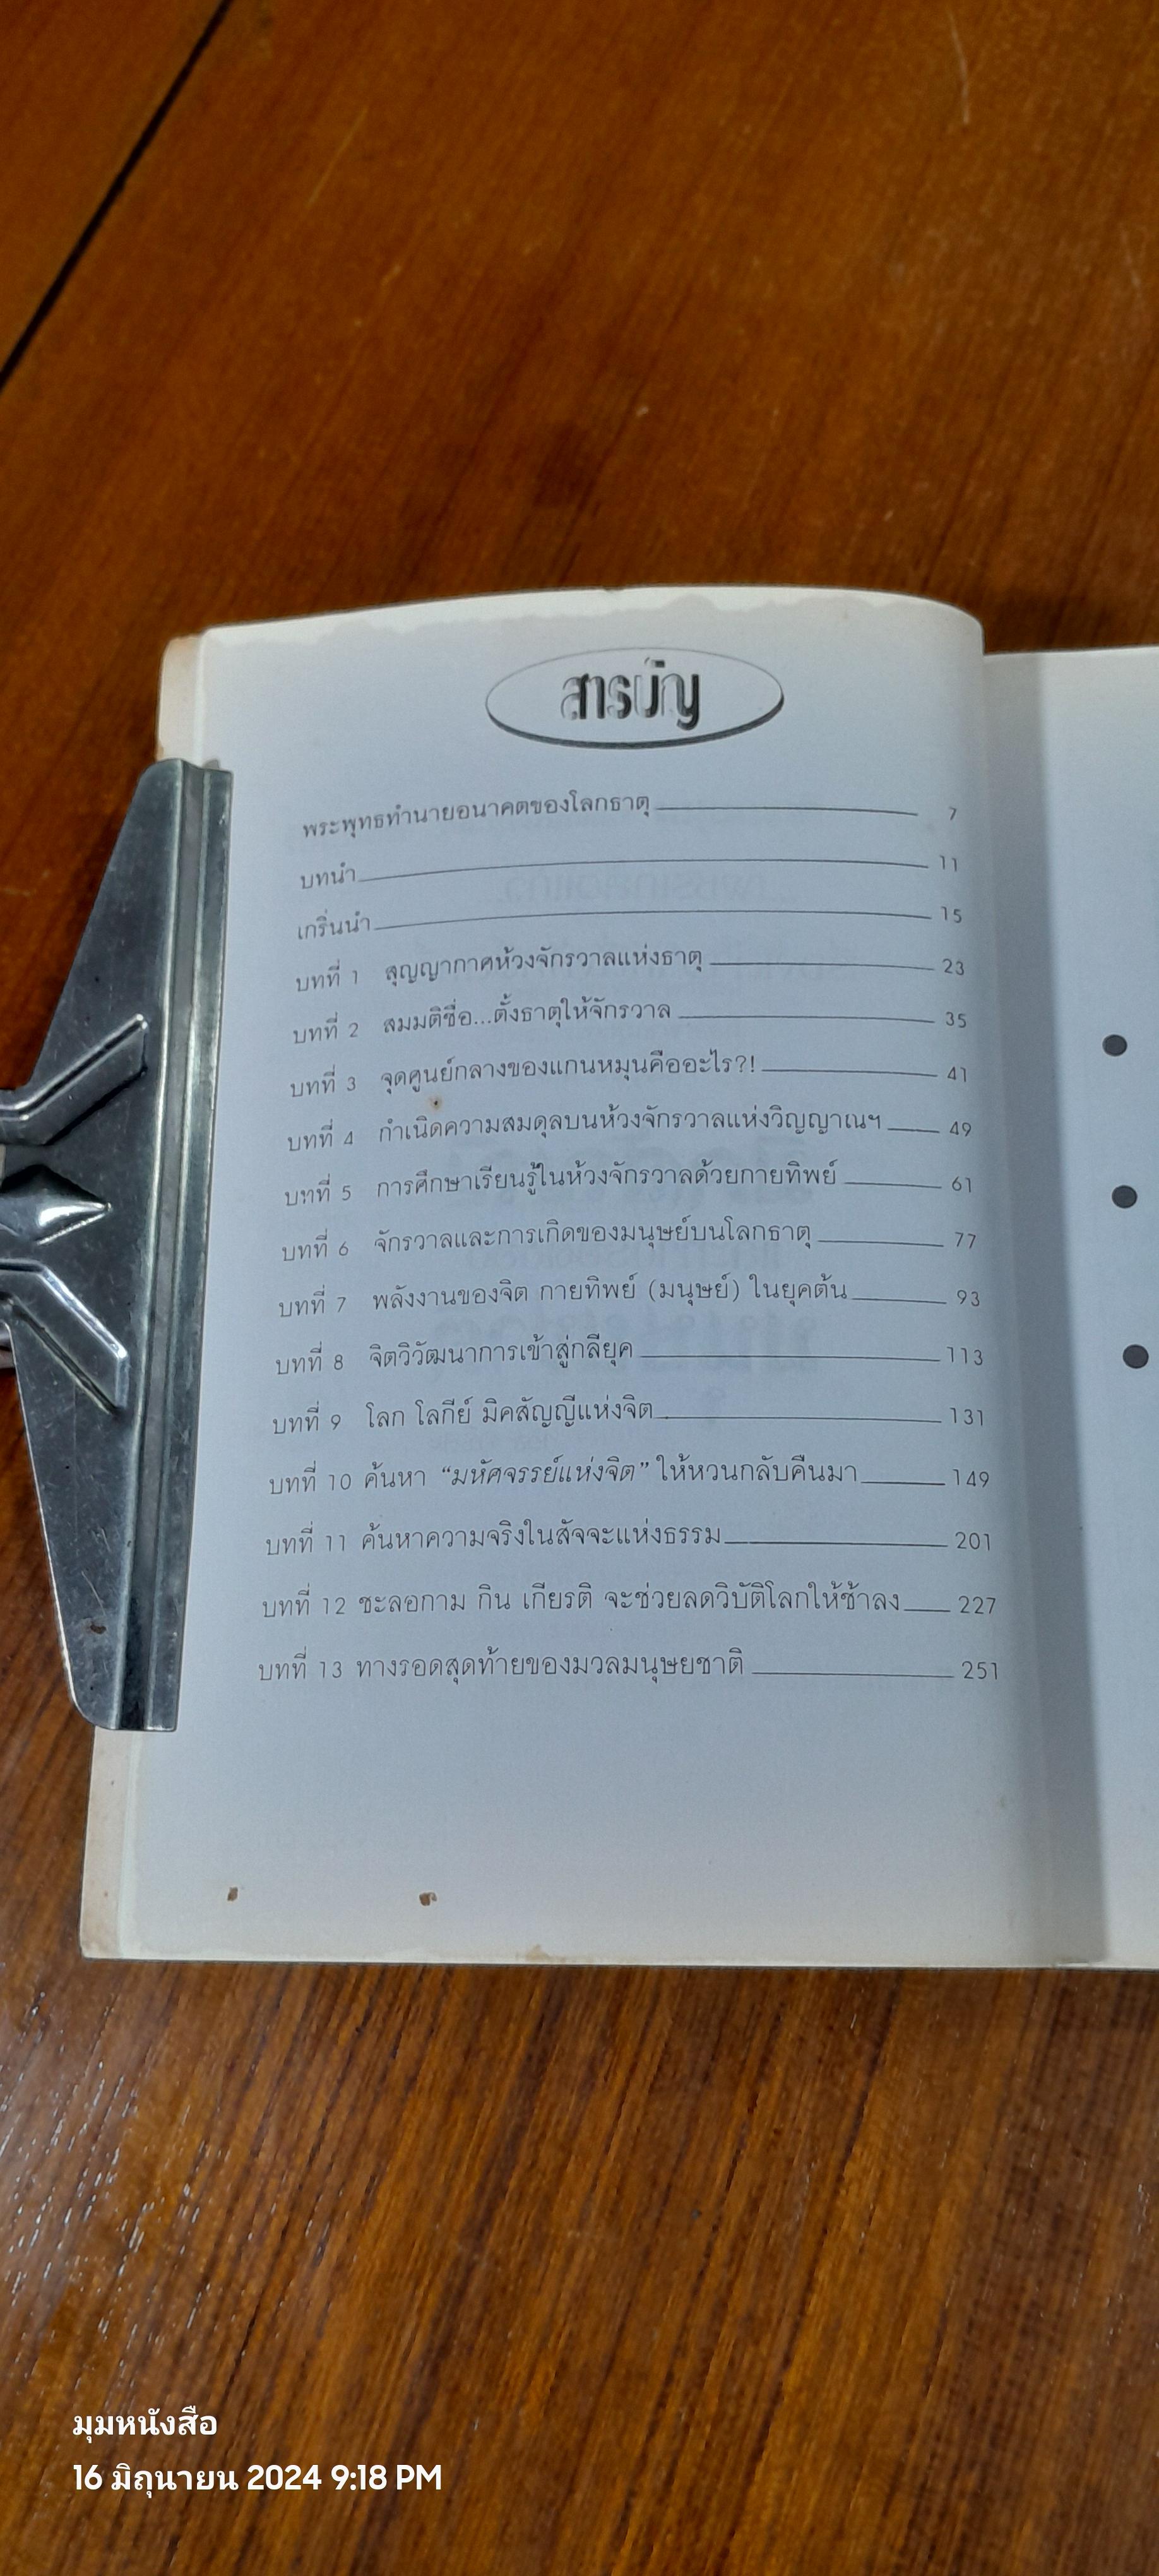 สารบัญ
พระพุทธทำนายอนาคตของโลกธาตุ 7
บทนำ 11
เกริ่นนำ 15
บทที่ 1 สุญญากาศห้วงจักรวาลแห่งธาตุ 23
บทที่ 2 สมมติชื่อ...ตั้งธาตุให้จักรวาล 35
บทที่ 3 จุดศูนย์กลางของแกนหมุนคืออะไร?! 41
บทที่ 4 กำเนิดความสมดุลบนห้วงจักรวาลแห่งวิญญาณฯ 49
บทที่ 5 การศึกษาเรียนรู้ในห้วงจักรวาลด้วยกายทิพย์ 61
บทที่ 6 จักรวาลและการเกิดของมนุษย์บนโลกธาตุ 77
บทที่ 7 พลังงานของจิต กายทิพย์ (มนุษย์) ในยุคต้น 93
บทที่ 8 จิตวิวัฒนาการเข้าสู่กลียุค 113
บทที่ 9 โลก โลกีย์ มิคสัญญีแห่งจิต 131
บทที่ 10 ค้นหา “มหัศจรรย์แห่งจิต” ให้หวนกลับคืนมา 149
บทที่ 11 ค้นหาความจริงในสัจจะแห่งธรรม 201
บทที่ 12 ชะลอกาม กิน เกียรติ จะช่วยลดวิบัติโลกให้ช้าลง 227
บทที่ 13 ทางรอดสุดท้ายของมวลมนุษยชาติ 251
มุมหนังสือ
16 มิถุนายน 2024 9:18 PM